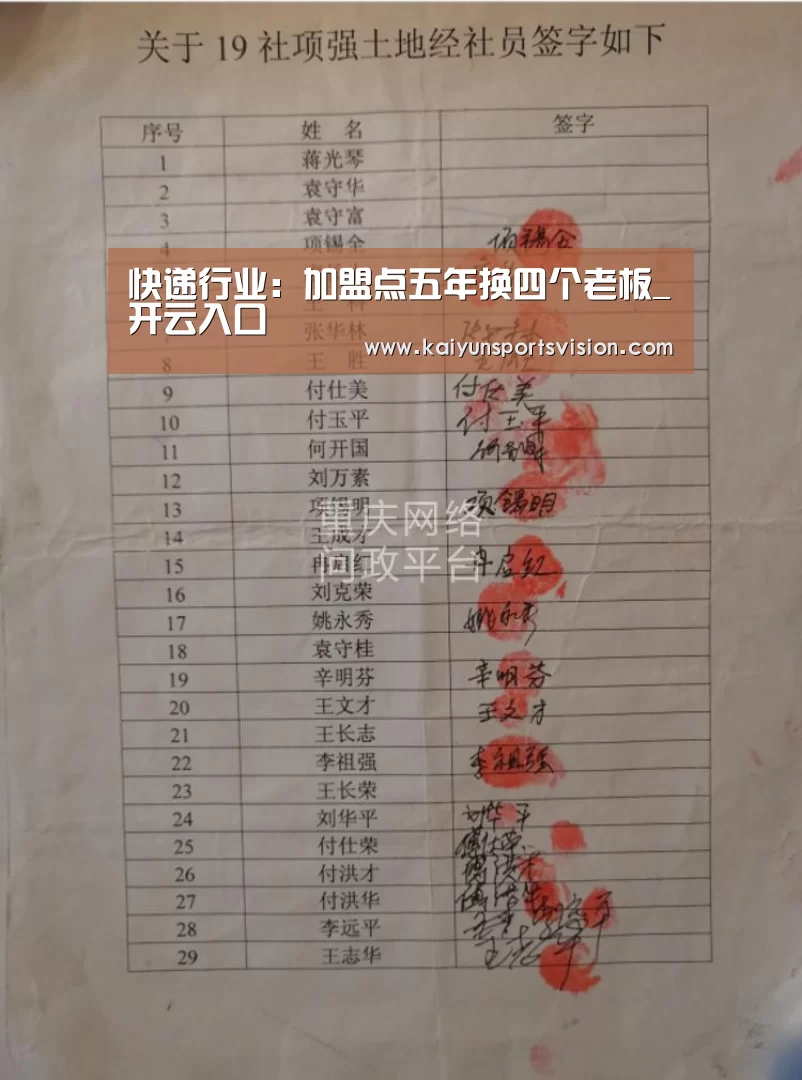 关于19社项强土地经社员签字如下
序号 姓 名 签字
1 蒋光琴
2 袁守华
3 袁守富
4 项锡全 项锡全
快递行业：加盟点五年换四个老板_
开云入口
www.kaiyunsportsvision.com
张华林
8 王 胜
9 付仕美 付仕美
10 付玉平 付玉平
11 何开国
12 刘万素
13 项锡明 项锡明
重庆网络
14 王成才
15 冉启红 冉启红
问政平台
16 刘克荣
17 姚永秀 姚永秀
18 袁守桂
19 辛明芬 辛明芬
20 王文才 王文才
21 王长志
22 李祖强 李祖强
23 王长荣
24 刘华平 刘华平
25 付仕荣 傅仕荣
26 付洪才 傅洪才
27 付洪华 傅洪华
28 李远平
29 王志华